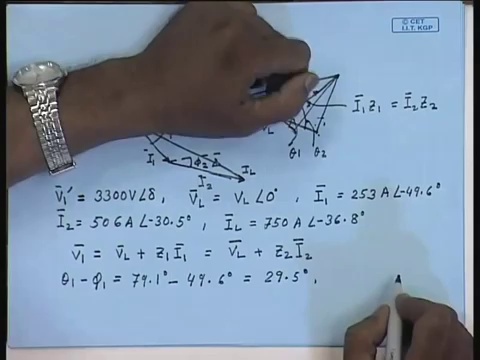 © CET
I.I.T. KGP
Ī₁Z₁ = Ī₂Z₂
θ₁ θ₂
Ī₁ φ₂
I₂ I_L
V̄₁' = 3300V∠δ , V̄_L = V_L∠0° , Ī₁ = 253 A∠-49.6°
Ī₂ = 506 A∠-30.5° , Ī_L = 750 A∠-36.8°
V̄₁ = V̄_L + Z₁Ī₁ = V̄_L + Z₂Ī₂
θ₁ - φ₁ = 79.1° - 49.6° = 29.5° ,